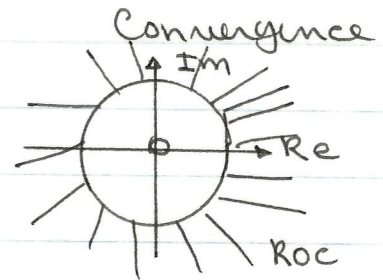 Convergence
Im
Re
ROC